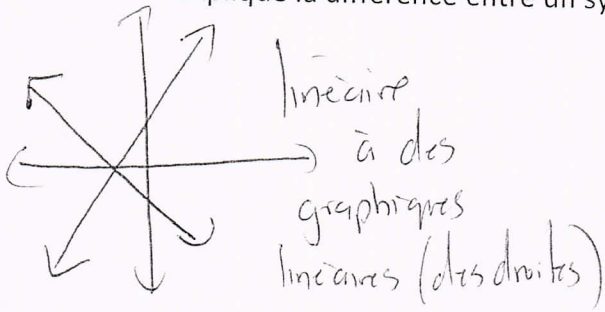 plique la différence entre un sy
linéaire
à des
graphiques
linéaires (des droites)